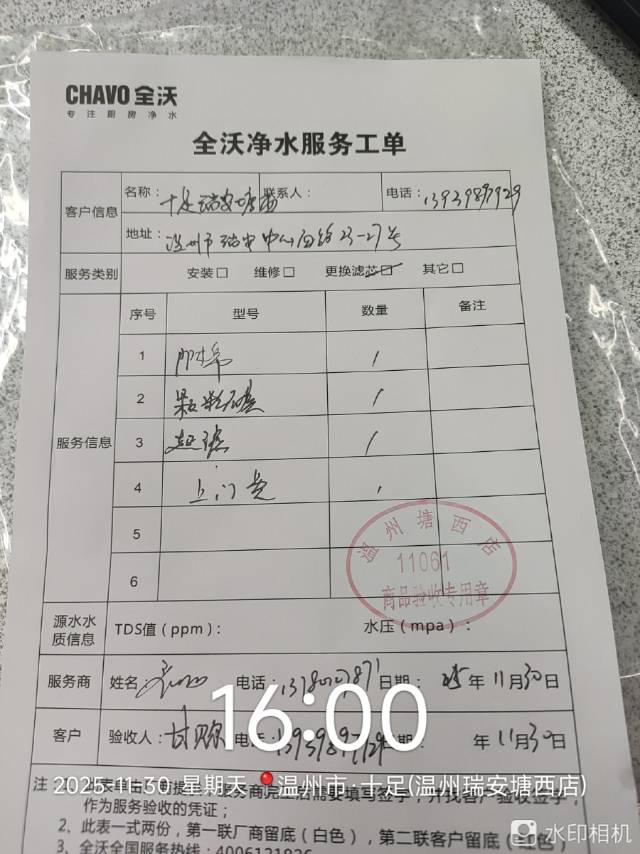 CHAVO 全沃
专注厨房净水
全沃净水服务工单
客户信息
名称：十足瑞安塘西 联系人： 电话：13939897929
地址：温州市瑞安中心西路23-27号
服务类别 安装□ 维修□ 更换滤芯□ 其它□
服务信息
序号 型号 数量 备注
1 PP棉 1
2 颗粒碳 1
3 超滤 1
4 上门费 1
5
6
温州塘西店
11061
商品验收专用章
源水水质信息 TDS值（ppm）： 水压（mpa）：
服务商 姓名 电话： 日期：25年11月30日
客户 验收人： 电话：13939897929 年11月30日
16:00
2025-11-30 星期天 温州市·十足(温州瑞安塘西店)
作为服务验收的凭证；
2、此表一式两份，第一联厂商留底（白色），第二联客户留底（红色）
3、全沃全国服务热线：4006121826
水印相机